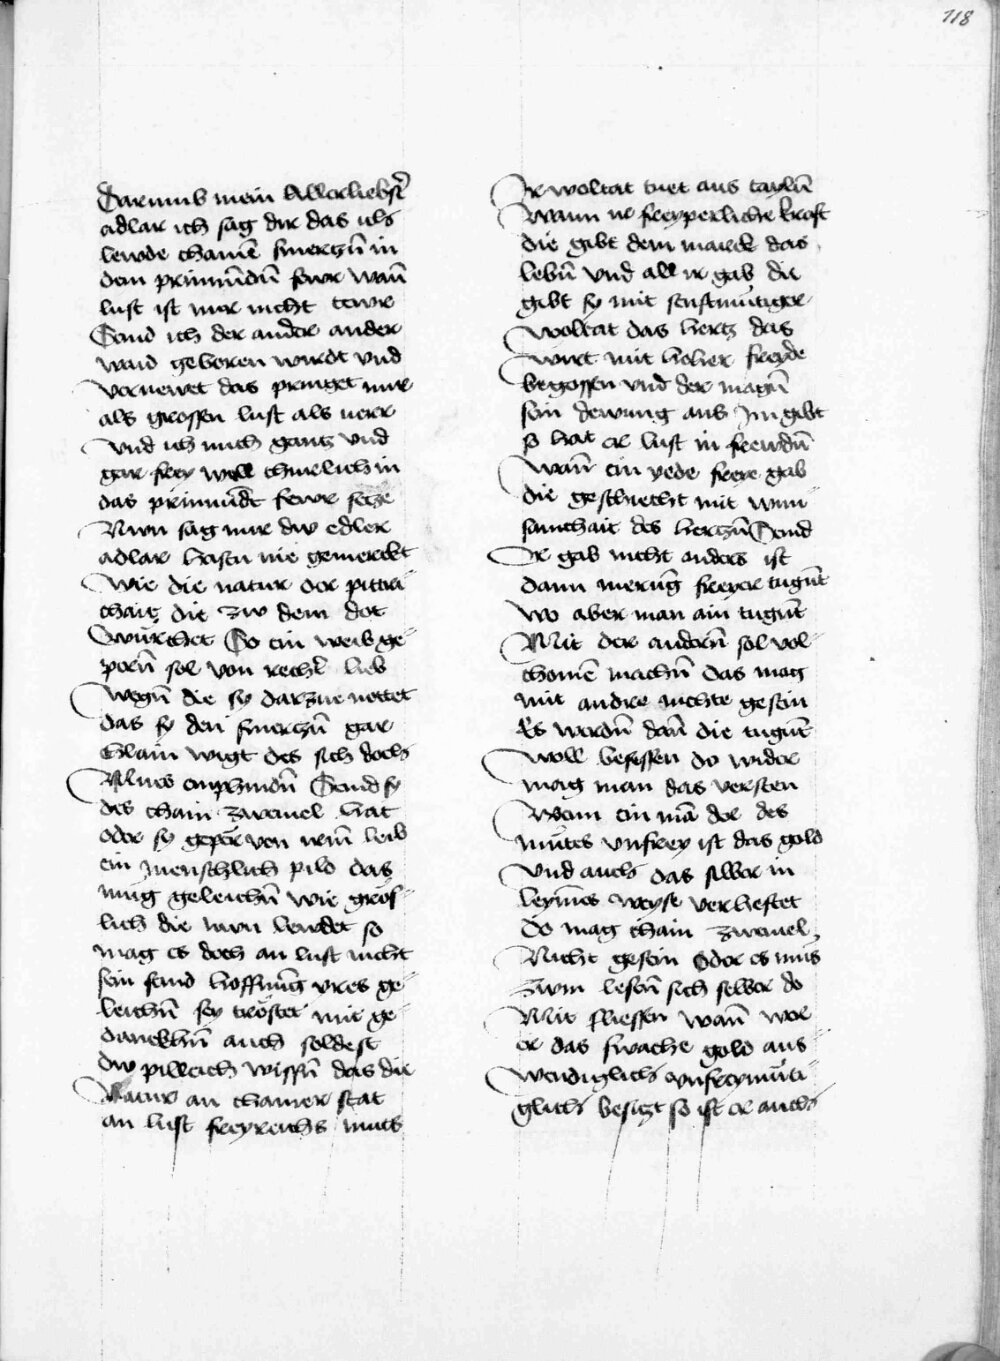 118
Darumb mein Allerliebst̄
adlar ich sag dir das ich
lewde chainē smerczn̄ in
dem prinnn̄dn̄ fewr wan̄
lust ist mir nicht tewr
Seind ich der ander ander
waid geboren wirdt vnd
vernewet das pringet mir
als grossen lust als nerr
vnd ich mich gantz vnd
gar frey woll chnelich in
das prinnūdt fewr secze
Nwn sag mir dw edler
adlar hastu nie gemerckt
wie die natur der pittri
chait die zw dem dot
wurchet So ein weib ge
porn̄ sol von recht̄ lieb
wegn̄ die sy darzue nottet
das sy den smerczn̄ gar
chlain wigt des sich doch
Mues emphindn̄ Seind sy
des chain zweiuel hat
oder sy geper von irm̄ leib
ein menschlich pild das
mug geleichn̄ wie gros
lich die nwn lewdet so
mag es doch an lust nicht
sein seind hoffnūg yres ge
leichn̄ sey trostet mit ge
danckhn̄ auch soldest
dw pilleich wissn̄ das die
Natur an chainer stat
an lust freyreichs mutes
Ir woltat tuet aus tayln̄
Wann ir freyperliche kraft
die gibt dem marck das
lebn̄ vnd all ir gab die
gibt sy mit senftmūtiger
woltat das hertz das
wirt mit hoher freyde
begossen vnd der magn̄
sein dewung aus Im gibt
so hat er lust in frewdn̄
wan̄ ein yede freye gab
die geschiecht mit wun
samchait des herczn̄ Seind
Ir gab nicht anders ist
dann merūg freyer tugn̄t
wo aber man ain tugn̄t
Mit der andern̄ sol vol
chomē machn̄ das mag
mit andre nichte gesein
Es werdn̄ dan̄ die tugn̄t
woll besessen do wider
mag man das versten
Wenn ein mā der des
mutes vnfrey ist das gold
vnd auch das silber in
leym̄es weyse verheftet
do mag chain zweiuel
Nicht gesein Oder es mus
zwm lesen̄ sich selber do
Mit fliessen wan̄ wer
er das swache gold aus
wendiglich vnfreymuti
glich besiczt so ist er auch